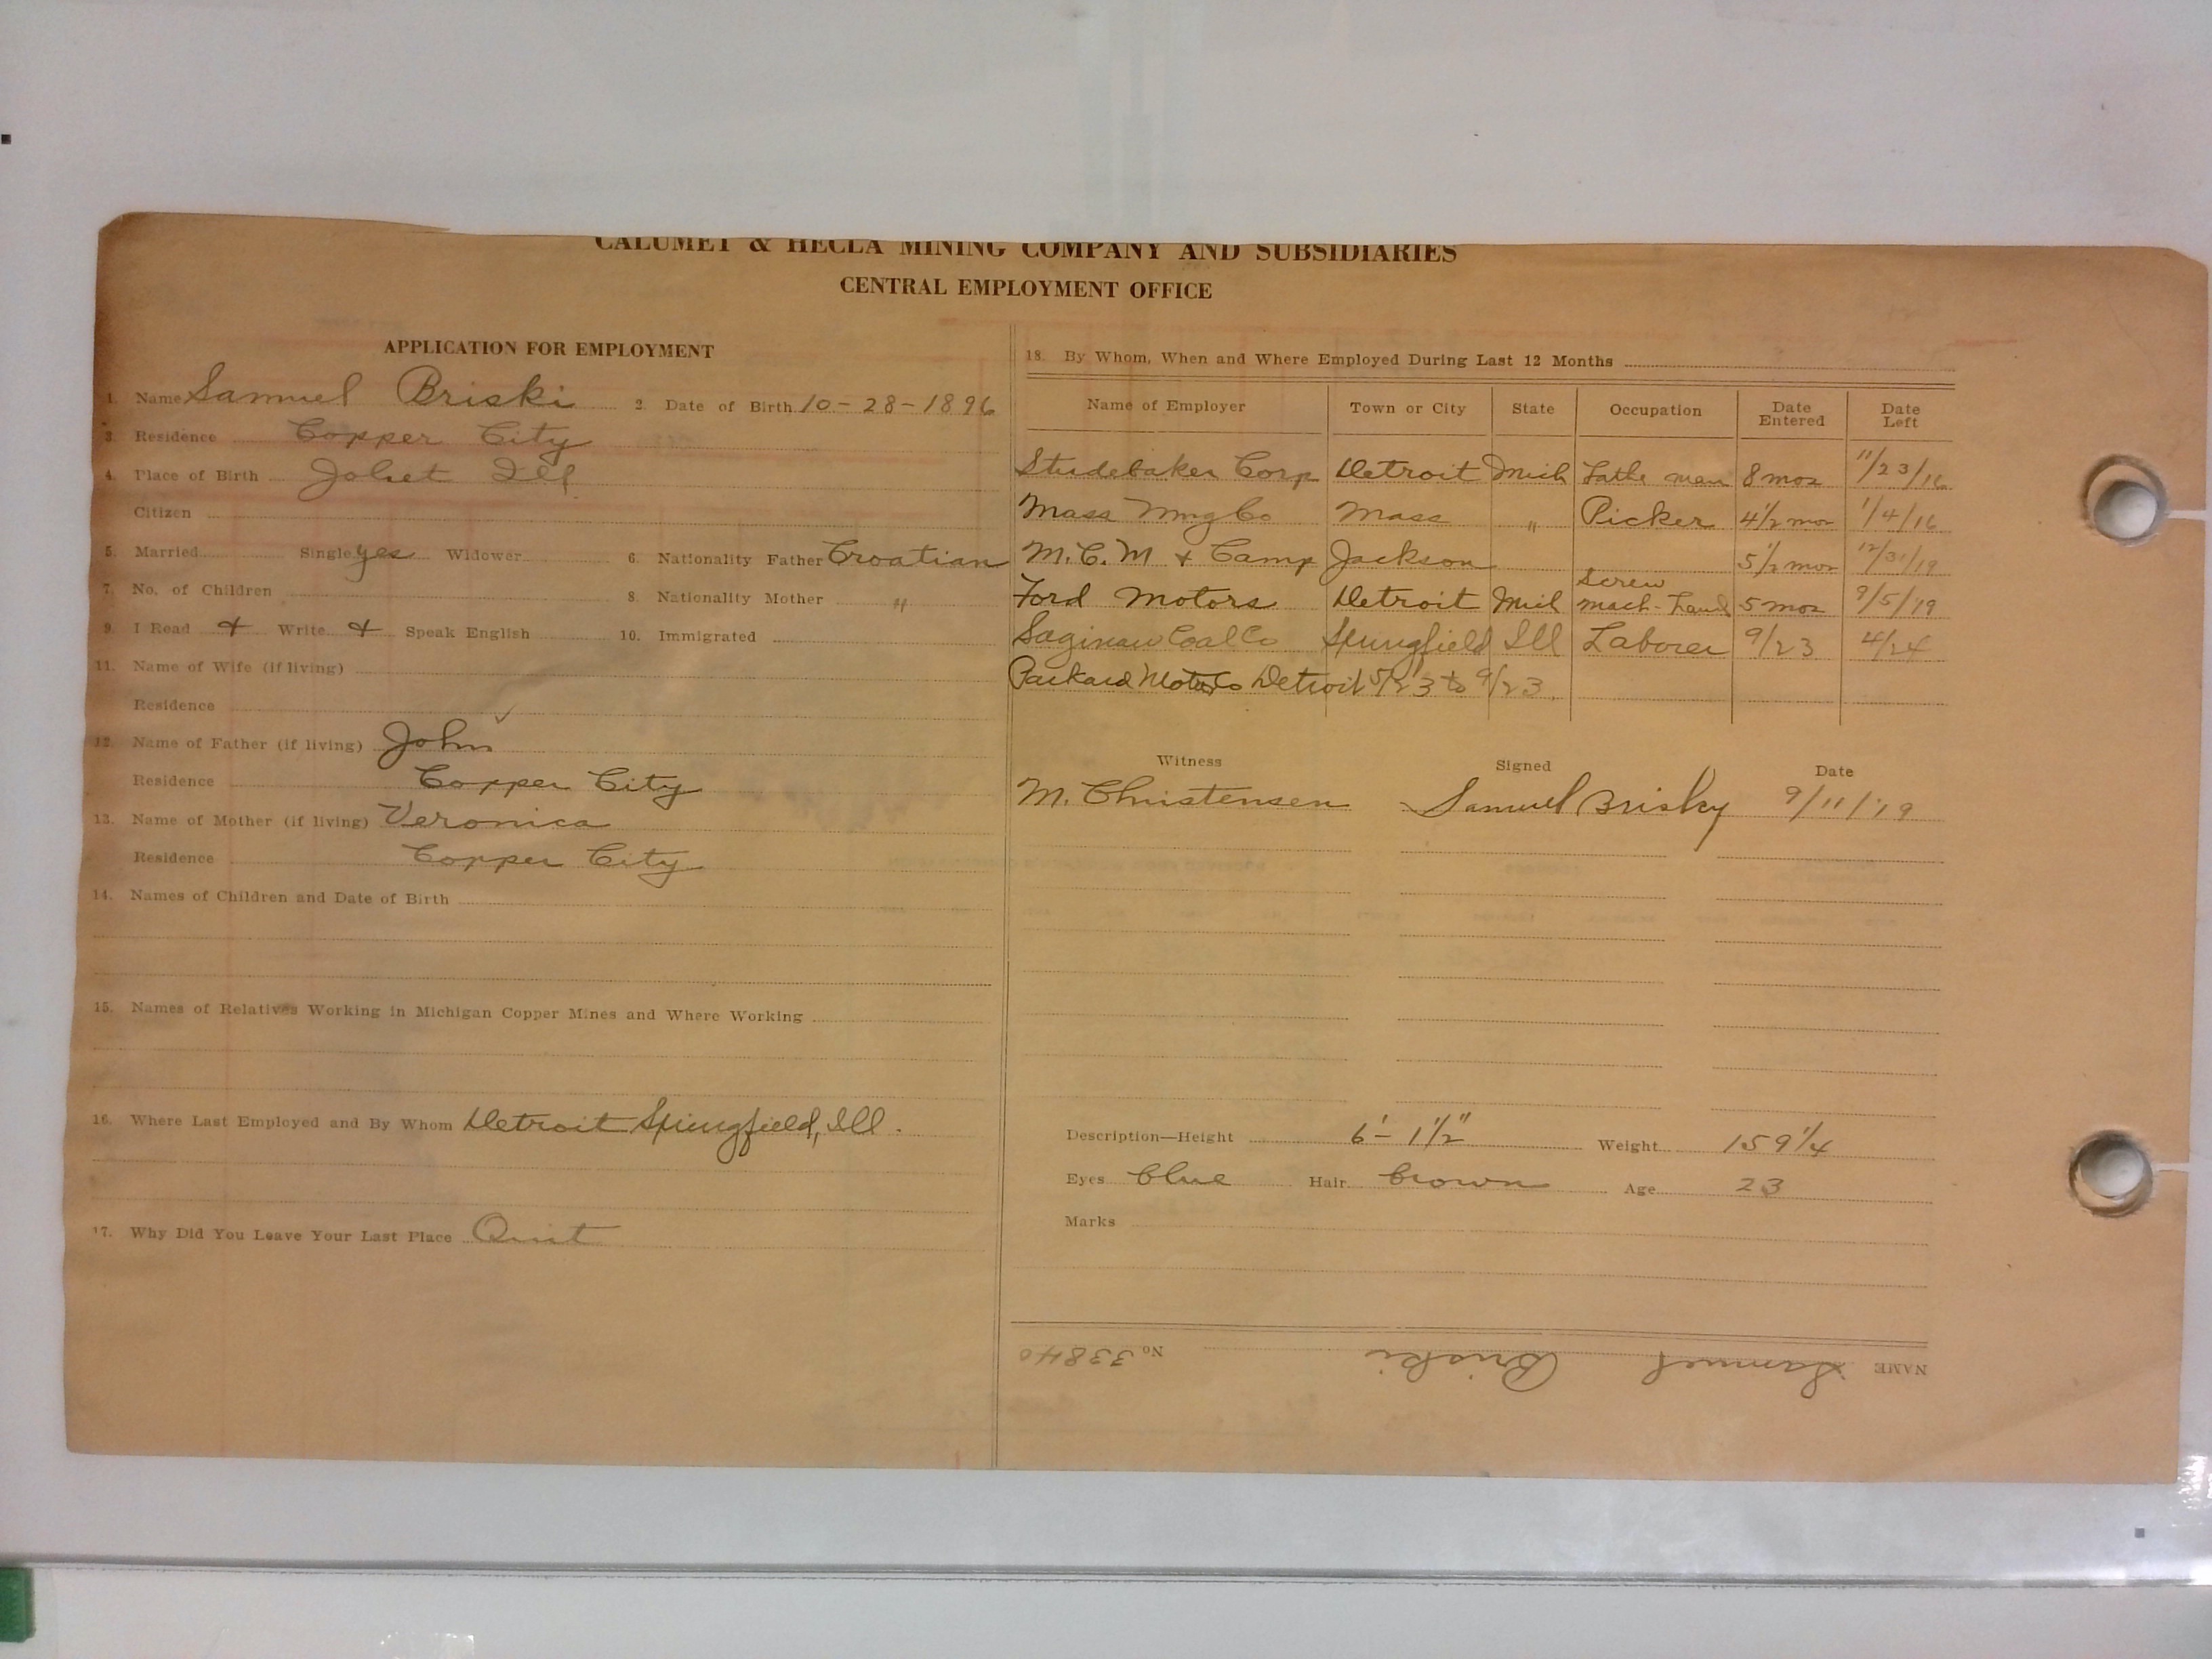 CALUMET & HECLA MINING COMPANY AND SUBSIDIARIES
CENTRAL EMPLOYMENT OFFICE
APPLICATION FOR EMPLOYMENT
1. Name Samuel Briski 2. Date of Birth 10-28-1896
3. Residence Copper City
4. Place of Birth Joliet Ill
Citizen
5. Married Single yes Widower 6. Nationality Father Croatian
7. No. of Children 8. Nationality Mother "
9. I Read + Write + Speak English 10. Immigrated
11. Name of Wife (if living)
Residence
12. Name of Father (if living) John
Residence Copper City
13. Name of Mother (if living) Veronica
Residence Copper City
14. Names of Children and Date of Birth
15. Names of Relatives Working in Michigan Copper Mines and Where Working
16. Where Last Employed and By Whom Detroit Springfield, Ill.
17. Why Did You Leave Your Last Place Quit
18. By Whom, When and Where Employed During Last 12 Months
Name of Employer Town or City State Occupation Date Entered Date Left
Studebaker Corp Detroit Mich Lathe man 8 mos 11/23/16
Mass Mng Co Mass " Picker 4 1/2 mos 1/4/16
M.C.M & Camp Jackson 5 1/2 mos 12/31/19
Ford Motors Detroit Mich Screw mach. hand 5 mos 9/5/19
Saginaw Coal Co Springfield Ill Laborer 9/23 4/24
Packard Motor Co Detroit 5/23 to 9/23
Witness Signed Date
M. Christensen Samuel Brisky 9/11/19
Description—Height 6'-1 1/2" Weight 159 1/4
Eyes blue Hair brown Age 23
Marks
NAME Samuel Briski No. 33840